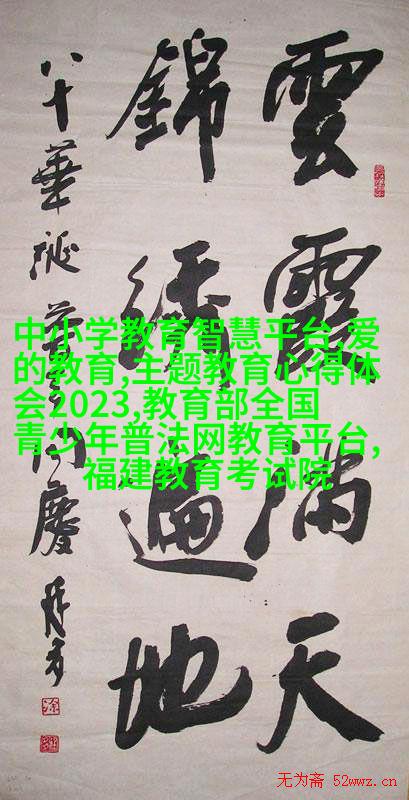 雲霞滿天
錦繡遍地
八十華誕同慶
中小学教育智慧平台,爱
的教育,主题教育心得体
会2023,教育部全国
青少年普法网教育平台,
福建教育考试院
无为斋 52wwz.cn